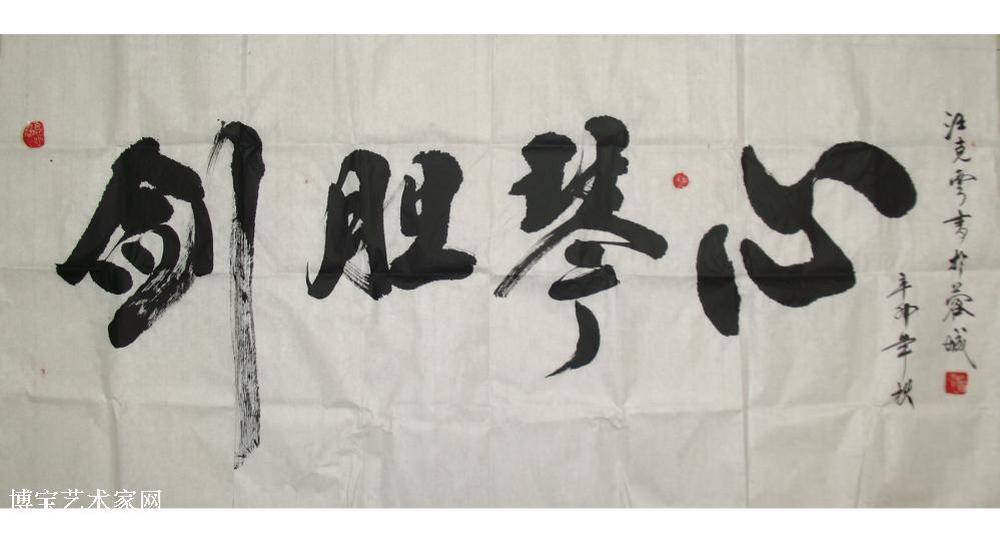 剑胆琴心
辛卯年秋
汪克云书于蓉城
博宝艺术家网